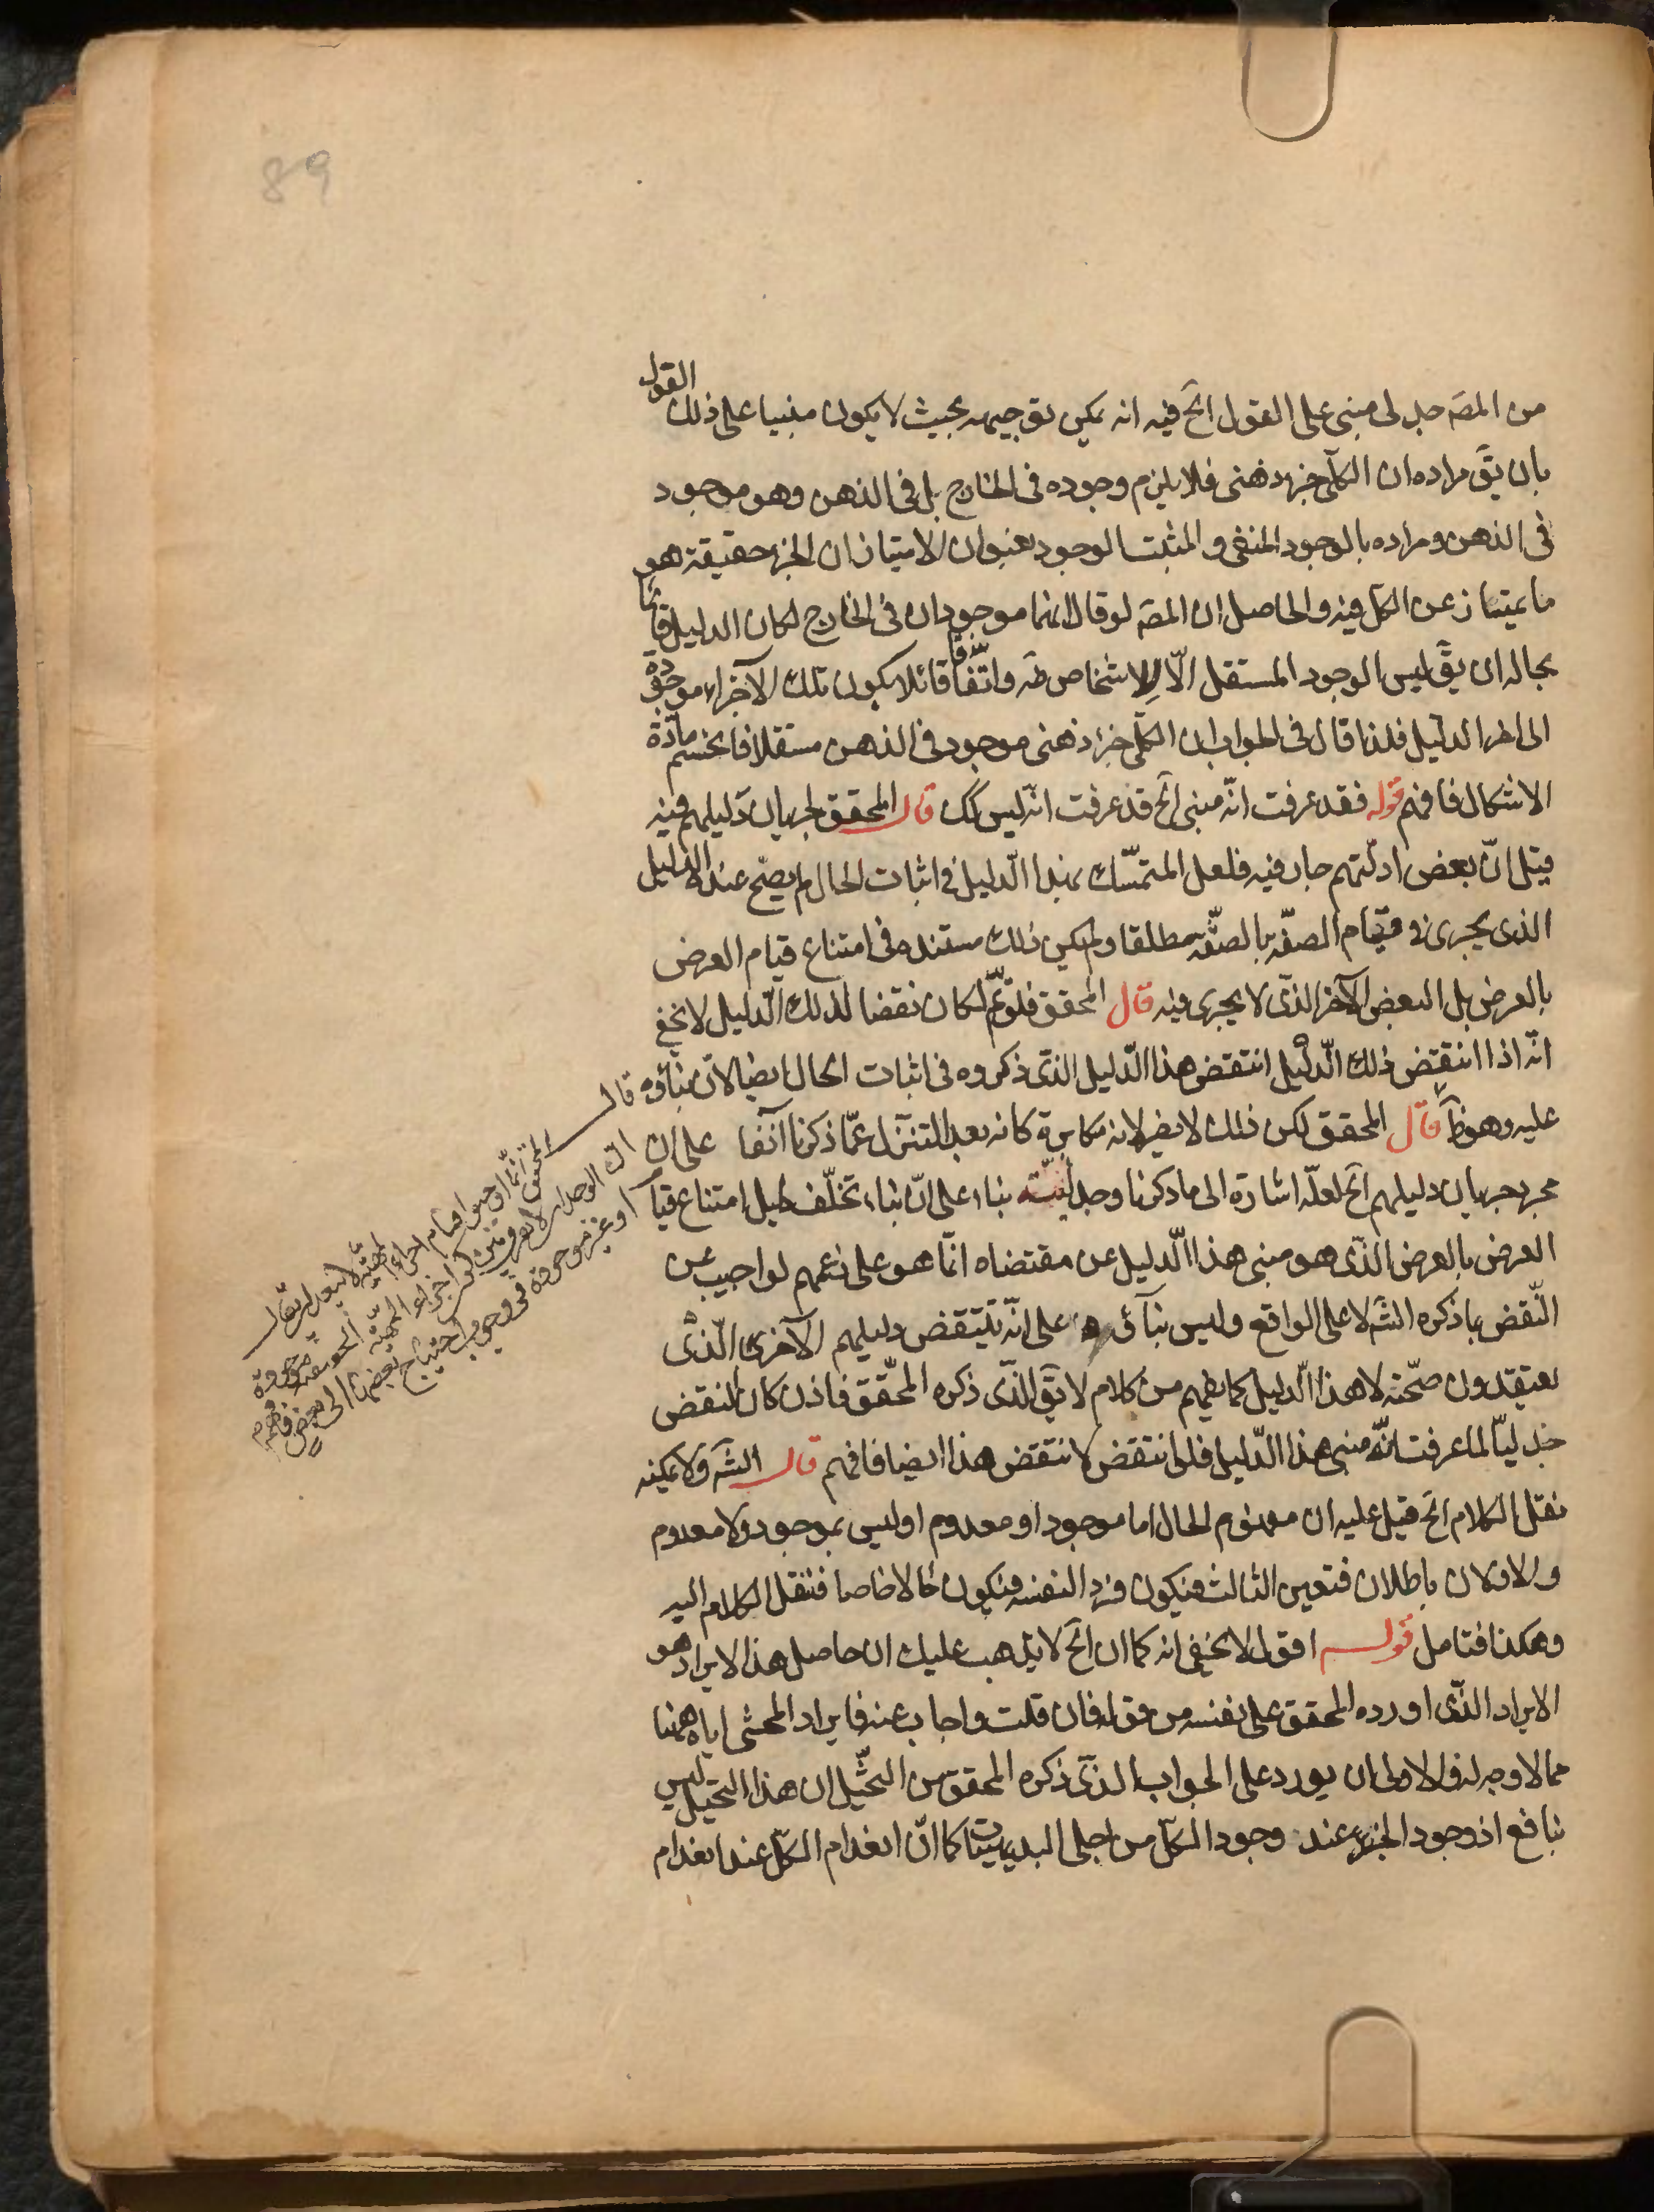 89
القول
من المصَ جدلى مبنى على القول اخَ فيه انه يمكن توجيهه بحيث لا يكون مبنيا على ذلك
بان يقَ مراده ان الكلّى جزء ذهنى فلا يلزم وجوده فى الخارج بل فى الذهن وهو موجود
فى الذهن ومراده بالوجود المنفى والمثبت الوجود بعنوان الامتياز ان الجزء حقيقة هو
ما يمتاز عن الكل فيه والحاصل ان المصَ لو قال انهما موجودان فى الخارج لكان الدليل قايما
بحاله ان يقَ ليس الوجود المستقل الّا للاشخاص طَه واتّفاقا قائلا بكون تلك الاجزاء موجودة
الى اخر الدليل فلذا قال فى الجواب ان الكلّى جزء ذهنى موجود فى الذهن مستقلا فانحسم مادّة
الاشكال فافهم قوله فقد عرفت انّه مبنى اخَ قد عرفت انّه ليس كَك قال المحقق لجريان دليلهم فيه
قيل انّ بعض ادلّتهم جار فيه فلعل المتمسّك بهذا الدّليل فى اثبات الحال لم يصحّ عنده الدليل
الذى يجرى فى قيام الصفّة بالصفّة مطلقا ولم يكن ذلك مستنده فى امتناع قيام العرض
بالعرض بل البعض الآخر الذّى لا يجرى فيه قال المحقق فلو تمّ لكان نقضا لذلك الدّليل لا يخفى
انّه اذا انتقض ذلك الدّليل انتقض هذا الدّليل الذّى ذكروه فى اثبات الحال ايضا لانّ بناؤه
عليه وهو ظَ قال المحقق لكن ذلك لا يضر لانه مكابرة كانه بعد التنزل عمّا ذكرنا آنفا على ان
مجرد جريان دليلهم اخَ لعلّه اشارة الى ما ذكرنا وجدليّته بناء على انّ بناء تخلّف دليل امتناع قيام
العرض بالعرض الذّى هو مبنى هذا الدّليل عن مقتضاه انّما هو على زعمهم لو اجيب عن
النّقض بما ذكره الشَه لا على الواقع وليس بناؤه على انّه ينتقض دليلهم الآخرى الّذى
يعتقدون صحّته لا هذا الدّليل كما يفهم من كلام لا يقَ الذّى ذكره المحقّق فاذن كان النقض
جدليّا لما عرفت انّه مبنى هذا الدّليل فلو انتقض لانتقض هذا ايضا فافهم قال الشَه ولا يمكنه
نقل الكلام اخَ قيل عليه ان مفهوم الحال اما موجود او معدوم او ليس بموجود ولا معدوم
والاوّلان باطلان فتعين الثالث فيكون فردا لنفسه فيكون حالا خاصا فننقل الكلام اليه
وهكذا فتامل قوله اقول لا يخفى انه كما ان اخَ لا يذهب عليك ان حاصل هذا الايراد هو
الايراد الذّى اورده المحقق على نفسه من قوله فان قلت واجاب عنه فايراد المحشى اياه ههنا
مما لا وجه له والاولى ان يورد على الجواب الذّى ذكره المحقق من التخيّل ان هذا التخيّل ليس
بنافع اذ وجود الجزء عند وجود الكلّ من اجلى البديهيّات كما انّ انعدام الكلّ عند انعدام
قال
المحقق
اجزاء المهيّة
موجودة
او غير موجودة فى وجوب احتياج بعضها الى بعض فافهم